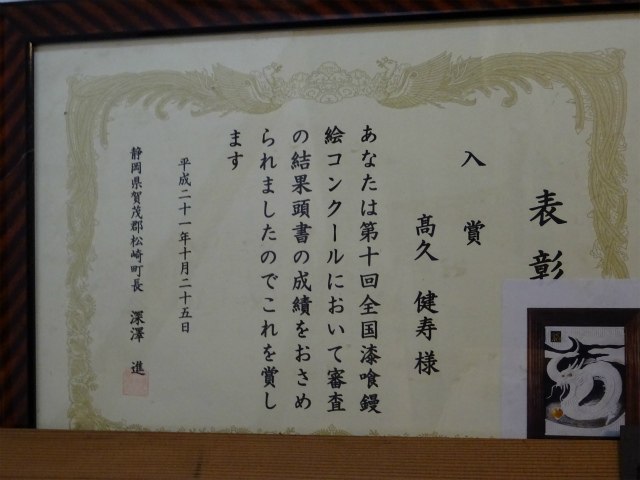 表彰
入賞
髙久 健寿様
あなたは第十回全国漆喰鏝
絵コンクールにおいて審査
の結果頭書の成績をおさめ
られましたのでこれを賞し
ます
平成二十一年十月二十五日
静岡県賀茂郡松崎町長 深澤 進